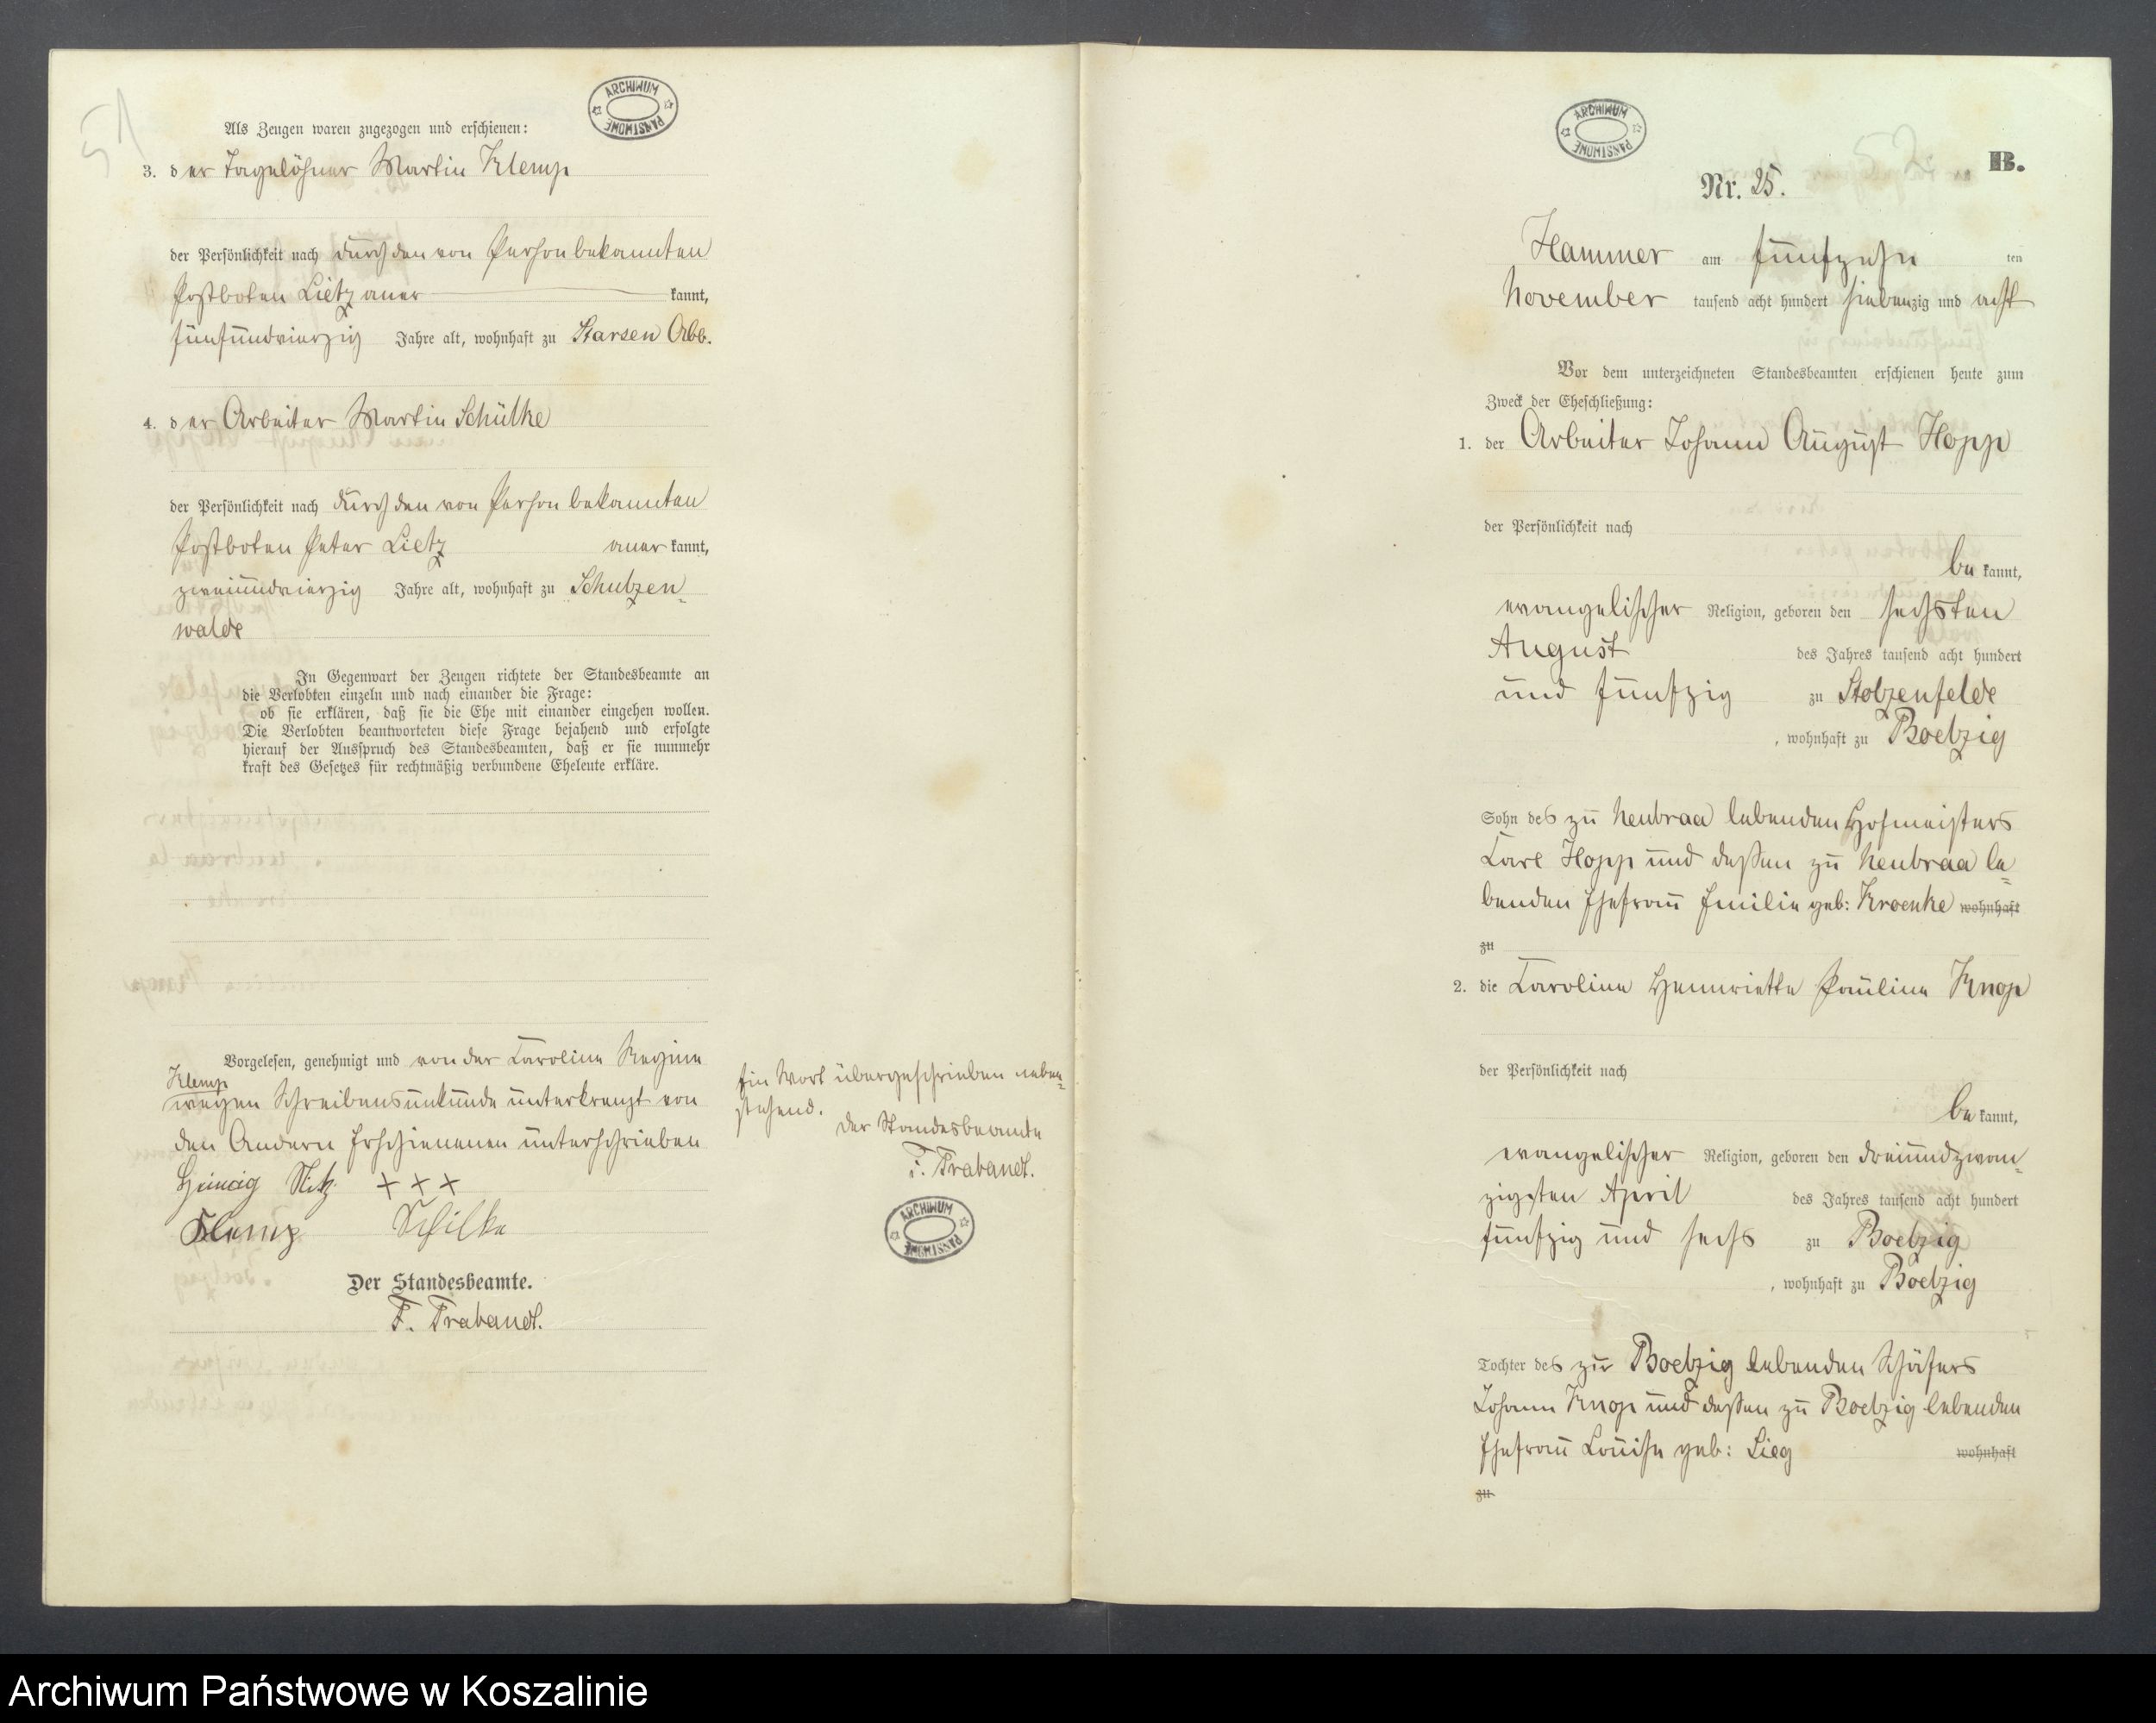 51
ARCHIWUM PAŃSTWOWE
Als Zeugen waren zugezogen und erschienen:
3. der Tagelöhner Martin Klemp
der Persönlichkeit nach durch den von Person bekannten
Postboten Lietz aner kannt,
fünfundvierzig Jahre alt, wohnhaft zu Starsen Abb.
4. der Arbeiter Martin Schülke
der Persönlichkeit nach durch den von Person bekannten
Postboten Peter Lietz aner kannt,
zweiundvierzig Jahre alt, wohnhaft zu Schulzen-
walde
In Gegenwart der Zeugen richtete der Standesbeamte an
die Verlobten einzeln und nach einander die Frage:
ob sie erklären, daß sie die Ehe mit einander eingehen wollen.
Die Verlobten beantworteten diese Frage bejahend und erfolgte
hierauf der Ausspruch des Standesbeamten, daß er sie nunmehr
kraft des Gesetzes für rechtmäßig verbundene Eheleute erkläre.
Vorgelesen, genehmigt und von der Caroline Regine
Klemp
wegen Schreibensunkunde unterkreuzt von
den Andern Erschienenen unterschrieben
+ + +
Klemp Schilke
Der Standesbeamte.
F. Trabandt.
Ein Wort übergeschrieben neben-
stehend.
Der Standesbeamte
F. Trabandt.
ARCHIWUM PAŃSTWOWE
ARCHIWUM PAŃSTWOWE
B.
Nr. 25.
Hammer am fünfzehn ten
November tausend acht hundert siebenzig und acht
Vor dem unterzeichneten Standesbeamten erschienen heute zum
Zweck der Eheschließung:
1. der Arbeiter Johann August Hopp
der Persönlichkeit nach
be kannt,
evangelischer Religion, geboren den sechsten
August des Jahres tausend acht hundert
und fünfzig zu Stolzenfelde
, wohnhaft zu Boelzig
Sohn des zu Neubraa lebenden Hofmeisters
Carl Hopp und dessen zu Neubraa le-
benden Ehefrau Emilie geb: Kroenke wohnhaft
zu
2. die Caroline Hennriette Pauline Knop
der Persönlichkeit nach
be kannt,
evangelischer Religion, geboren den dreiundzwan-
zigsten April des Jahres tausend acht hundert
fünfzig und sechs zu Boelzig
, wohnhaft zu Boelzig
Tochter des zu Boelzig lebenden Schäfers
Johann Knop und dessen zu Boelzig lebenden
Ehefrau Louise geb: Lieg wohnhaft
zu
Archiwum Państwowe w Koszalinie